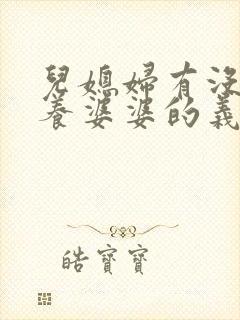 兒媳婦有沒
養婆婆的義
皓寶寶